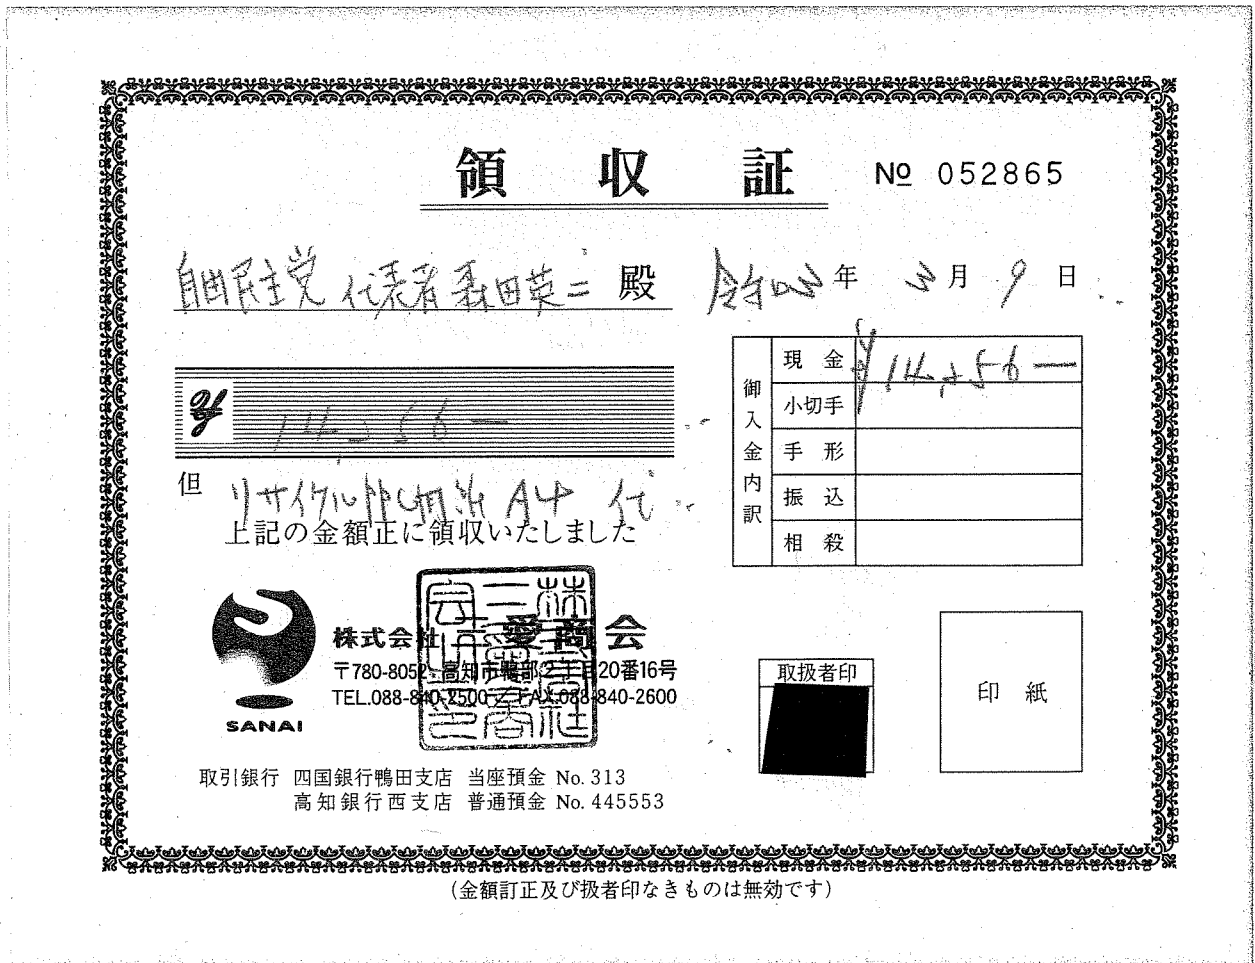 領収証
No 052865
自由民主党 代表者 森田英二 殿
令和3年3月9日
¥14,256―
但 リサイクルPPC用紙 A4 代
上記の金額正に領収いたしました
御入金内訳
現金 ¥14,256―
小切手
手形
振込
相殺
SANAI
株式会社 三愛商会
〒780-8052 高知市鴨部2丁目20番16号
TEL.088-840-2500 / FAX.088-840-2600
取扱者印
印紙
取引銀行 四国銀行鴨田支店 当座預金 No.313
高知銀行西支店 普通預金 No.445553
(金額訂正及び扱者印なきものは無効です)